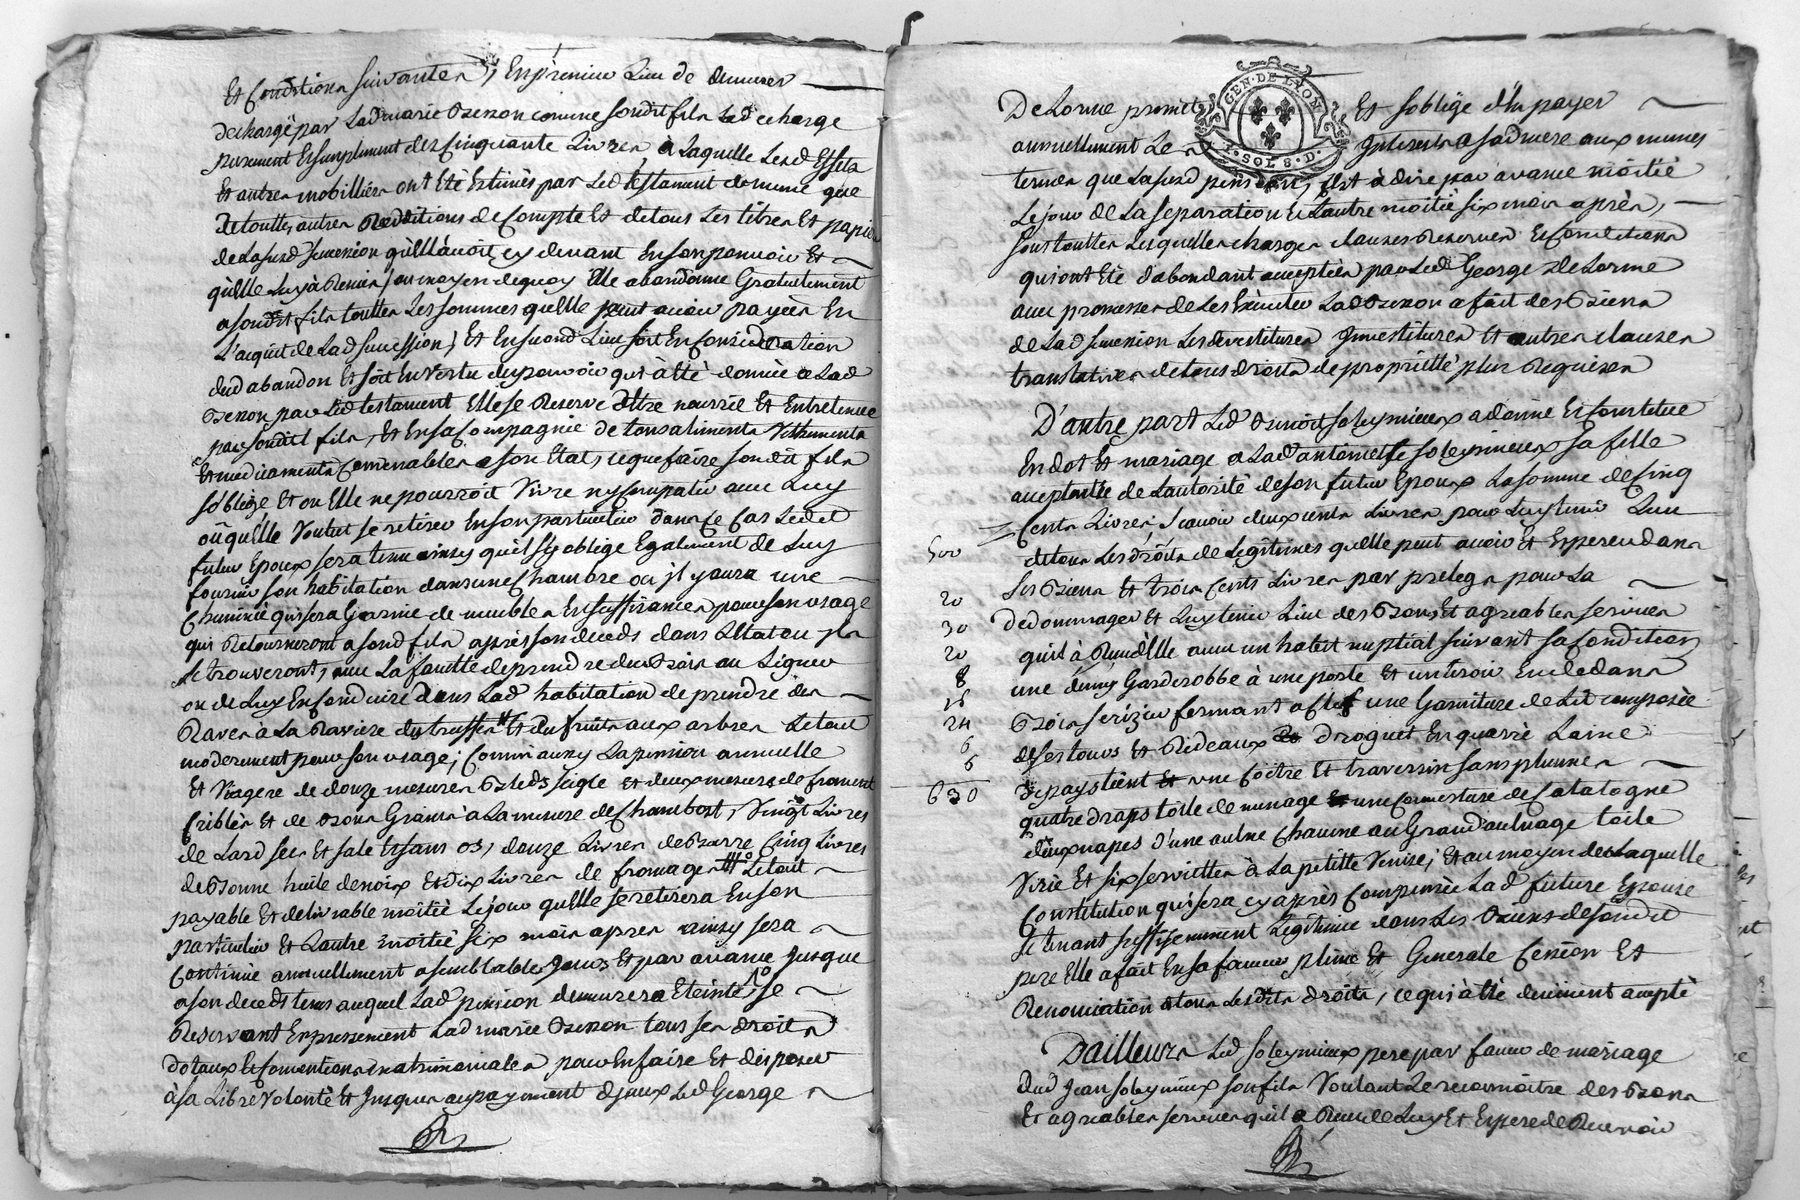 Et Conditions suivantes, En premier Lieu de demurer
dechargé par Lad marie Ozenon comme sondit fils Lad charge
purement Et simplement des Cinquante Livres a Laquelle Lesd Effets
Et autres mobilliers ont Eté Estimés par Led testament de meme que
De touttes autres Redditions de Compte Et de tous Les titres Et papiers
de Lasusd sucession quelle avoit cy devant En son pouvoir Et
quelle Luy à Remis, au moyen de quoy Elle abandonne Gratuitement
a sondit fils touttes Les sommes quelle peut avoir payées En
L'acquit de Lad sucession; Et En second Lieu soit En Consideration
dud abandon Et soit En Vertu du pouvoir qui à Eté donné a Lad
Ozenon par Led testament Elle se Reserve d'Etre nourrie Et Entretenue
par sondit fils, Et En sa Compagnie de tous aliments Vettements
Et medicaments Convenables a son Etat, ce que faire sondit fils
s'oblige Et ou Elle ne pourroit Vivre ny Compatir avec Luy
où quelle Voulut se retirer En son particulier dans ce Cas Ledit
futur Epoux sera tenu ainsy qu'il s'y oblige Egalement de Luy
fournir son habitation dans une Chambre ou jl y aura une
Cheminée qui sera Garnie de meubles En suffisance pour son usage
qui Retourneront a sond fils après son deceds dans L'Etat ou jls
se trouveront, avec La faculté de prendre du Bois au Ligner
ou de Luy En faire Conduire dans Lad habitation de prendre des
Raves a La Raviere des truffes Et du fruit aux arbres Le tout
moderement pour son usage; Comm'aussy La pension annuelle
Et Viagere de douze mesures Bled seigle Et deux mesures de froment
Criblés Et de Bons Grains à La mesure de Chambost, Vingt Livres
de Lard sec Et salé Et sans os, douze Livres de Beurre Cinq Livres
de Bonne huile de noix Et dix Livres de fromage Le tout
payable Et delivrable moitié Le jour quelle se retirera En son
particulier Et L'autre moitié six mois apres ainsy sera
Continué annuellement a semblables Jours Et par avance Jusque
a son deceds tems auquel Lad pension demeurera Eteinte, se
Reservant Expressement Lad marie Ozenon tous ses droits
Dotaux Et Conventions matrimoniales pour En faire Et disposer
à sa Libre Volonté Et Jusques au payement d'jceux Led George
De Lorme promet Et s'oblige d'En payer
annuellement Les Interests a sad mere aux memes
termes que Lasusd pension, C'Est à dire par avance moitié
Le jour de La separation Et L'autre moitié six mois après,
sous touttes Lesquelles charges clauses Reserves Et Conditions
qui ont Eté d'abondant acceptées par Led George De Lorme
avec promesse de Les Executer Lad Ozenon a fait des Biens
de Lad sucession Les devestitures Investitures Et autres clauses
translatives de tous droits de proprieté plus Requises
D'autre part Led Benoit soleymieux a donné Et Constitué
En dot Et mariage a Lad antoinette soleymieux sa fille
acceptante de L'autorité de son futur Epoux La somme de Cinq
Cents Livres, scavoir deux cents Livres pour Luy tenir Lieu
500
de tous Les droits de Legitimes quelle peut avoir Et Esperer dans
ses Biens Et trois Cents Livres par prelegs pour La
20
Dedommager Et Luy tenir Lieu des Bons Et agreables services
30
qu'il à Reçu d'Elle avec un habit nuptial suivant sa Condition
20
une demy Garderobbe à une porte Et un tiroir En dedans
8
Bois serizier fermant a Clef une Garniture de Lit composée
16
24
de ses tours Et Rideaux Droguet En quarré Laine
6
du pays teint une Coitre Et traversin sans plumes
6
630
quatre draps toile de menage une Couverture de Catalogne
deux napes d'une aulne Chacune au Grand aulnage toile
Virée Et six serviettes à La petitte Venise; Et au moyen de Laquelle
Constitution qui sera cy après Comprisée Lad future Epouse
se tenant suffisemment Legitimée dans Les Biens de sondit
pere Elle a fait En sa faveur pleine Et Generale Cession Et
Renonciation a tous Lesdits droits, ce qui à Eté duement accepté
Dailleurs Led soleymieux pere par faveur de mariage
dud Jean soleymieux son fils Voulant Le reconnoitre des Bons
Et agreables services qu'il a Reçu de Luy Et Espere de Recevoir
GEN. DE LYON
1. SOL 8. D.